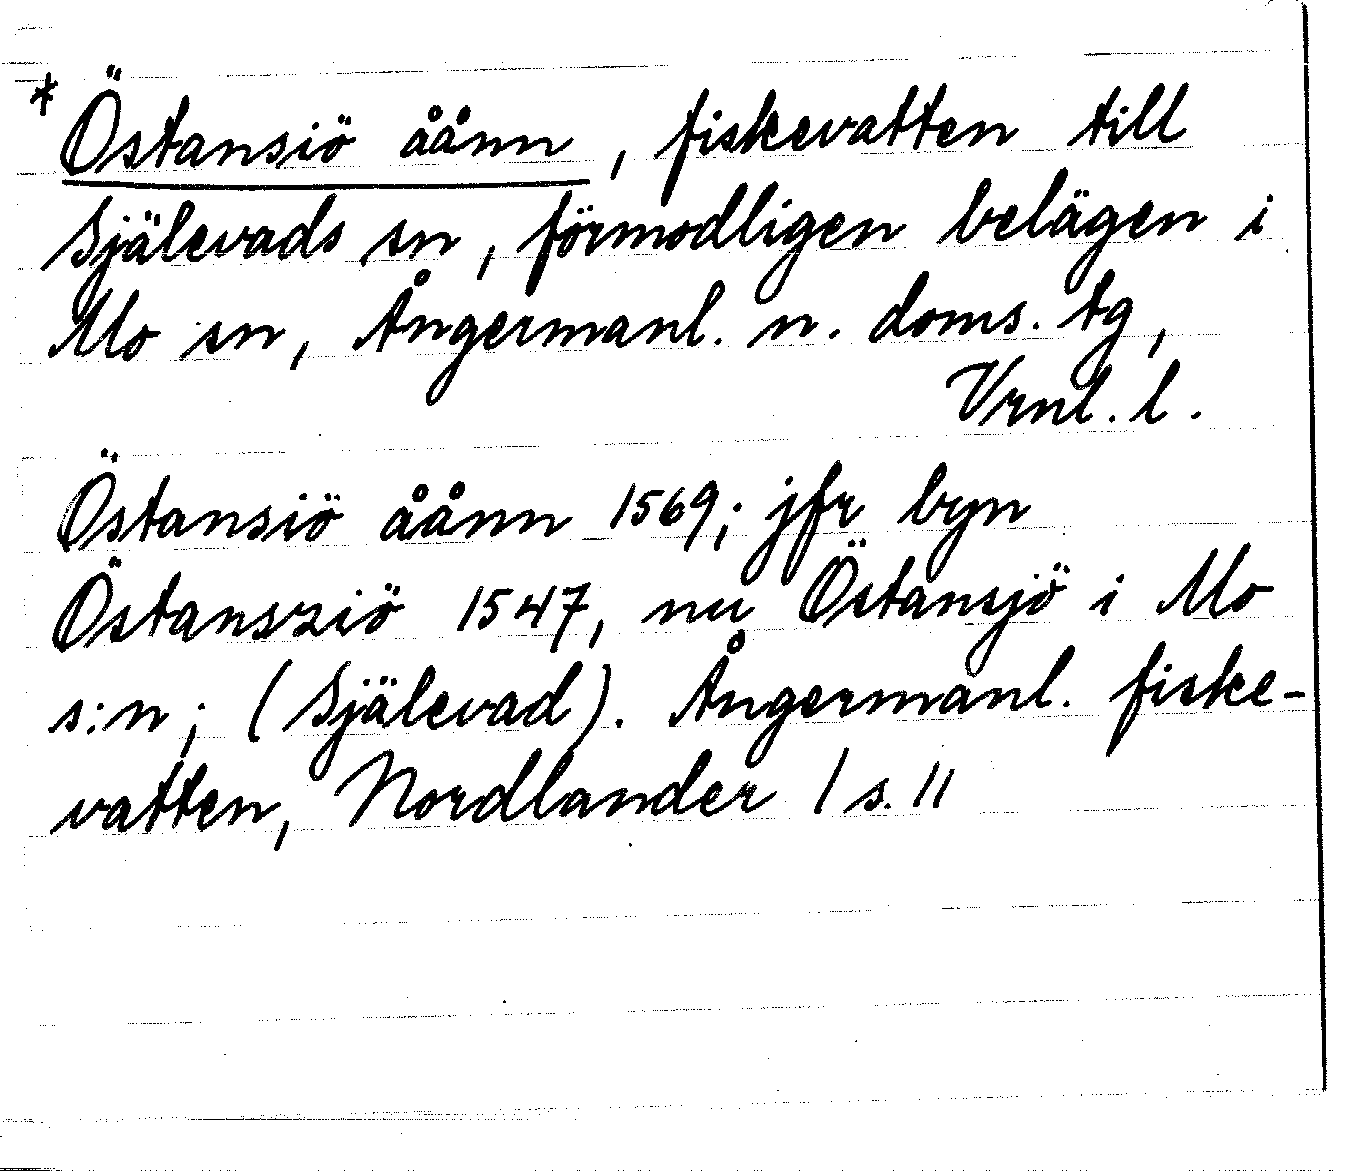 * Östansiö åånn, fiskevatten till
Själevads sn, förmodligen belägen i
Mo sn, Ångermanl. n. doms. tg,
Vrnl. l.
Östansiö åånn 1569; jfr byn
Östansziö 1547, nu Östansjö i Mo
s:n; (Själevad). Ångermanl. fiske-
vatten, Nordlander I s. 11